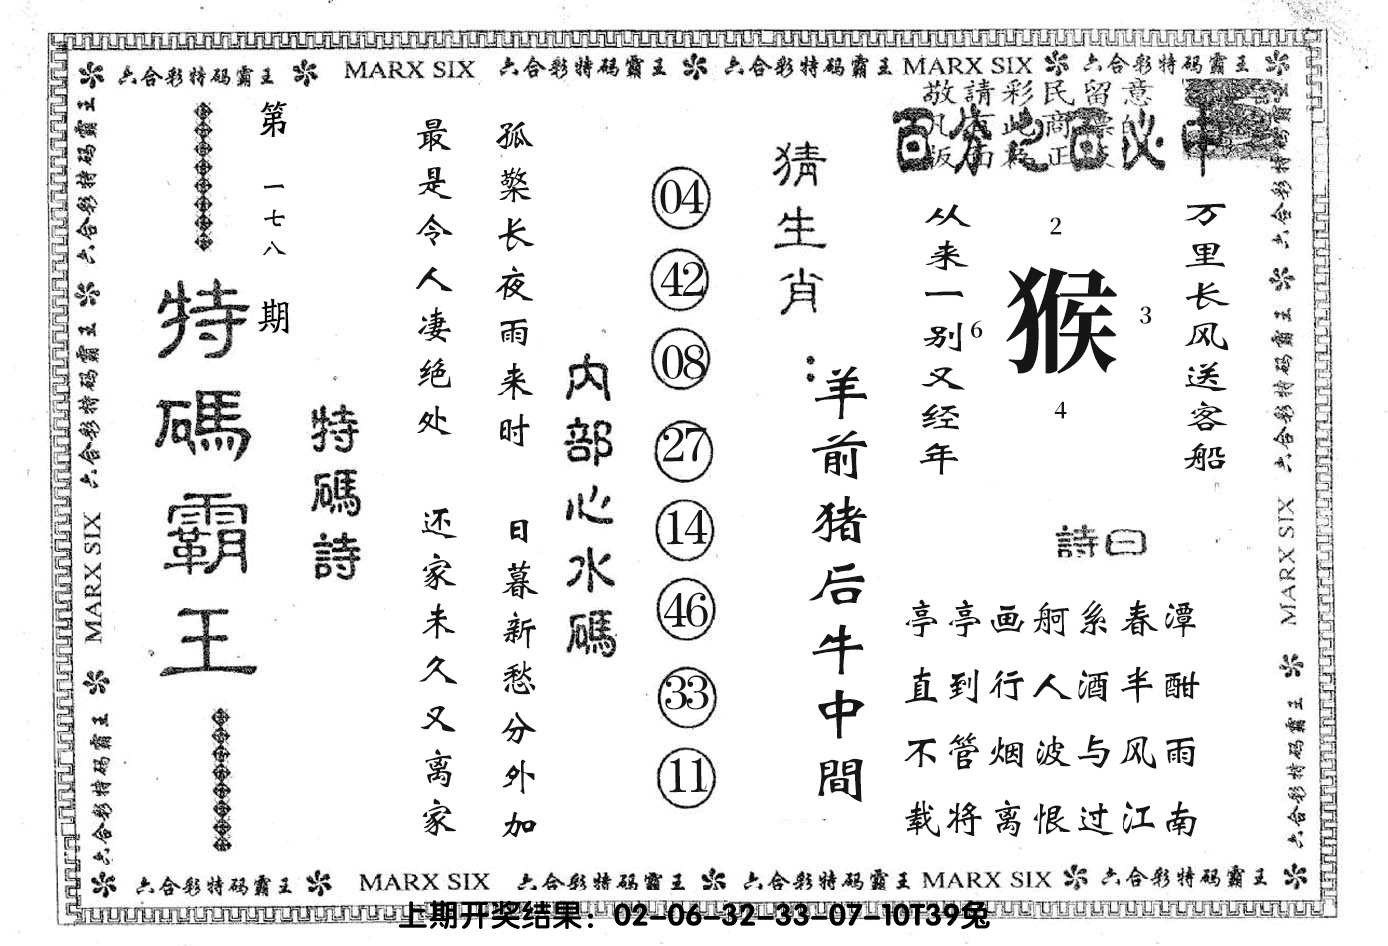 六合彩特码霸王 MARX SIX 六合彩特码霸王 六合彩特码霸王 MARX SIX 六合彩特码霸王
敬請彩民留意
第一七八期
特碼霸王
特碼詩
最是令人凄绝处 还家未久又离家
孤檠长夜雨来时 日暮新愁分外加
内部心水碼
04
42
08
27
14
46
33
11
猜生肖：
羊前猪后牛中間
从来一别又经年
2
6
猴
3
4
万里长风送客船
詩曰
亭亭画舸系春潭
直到行人酒半酣
不管烟波与风雨
载将离恨过江南
六合彩特码霸王 MARX SIX 六合彩特码霸王
六合彩特码霸王 MARX SIX 六合彩特码霸王
六合彩特码霸王 MARX SIX 六合彩特码霸王 六合彩特码霸王 MARX SIX 六合彩特码霸王
上期开奖结果：02-06-32-33-07-10T39兔